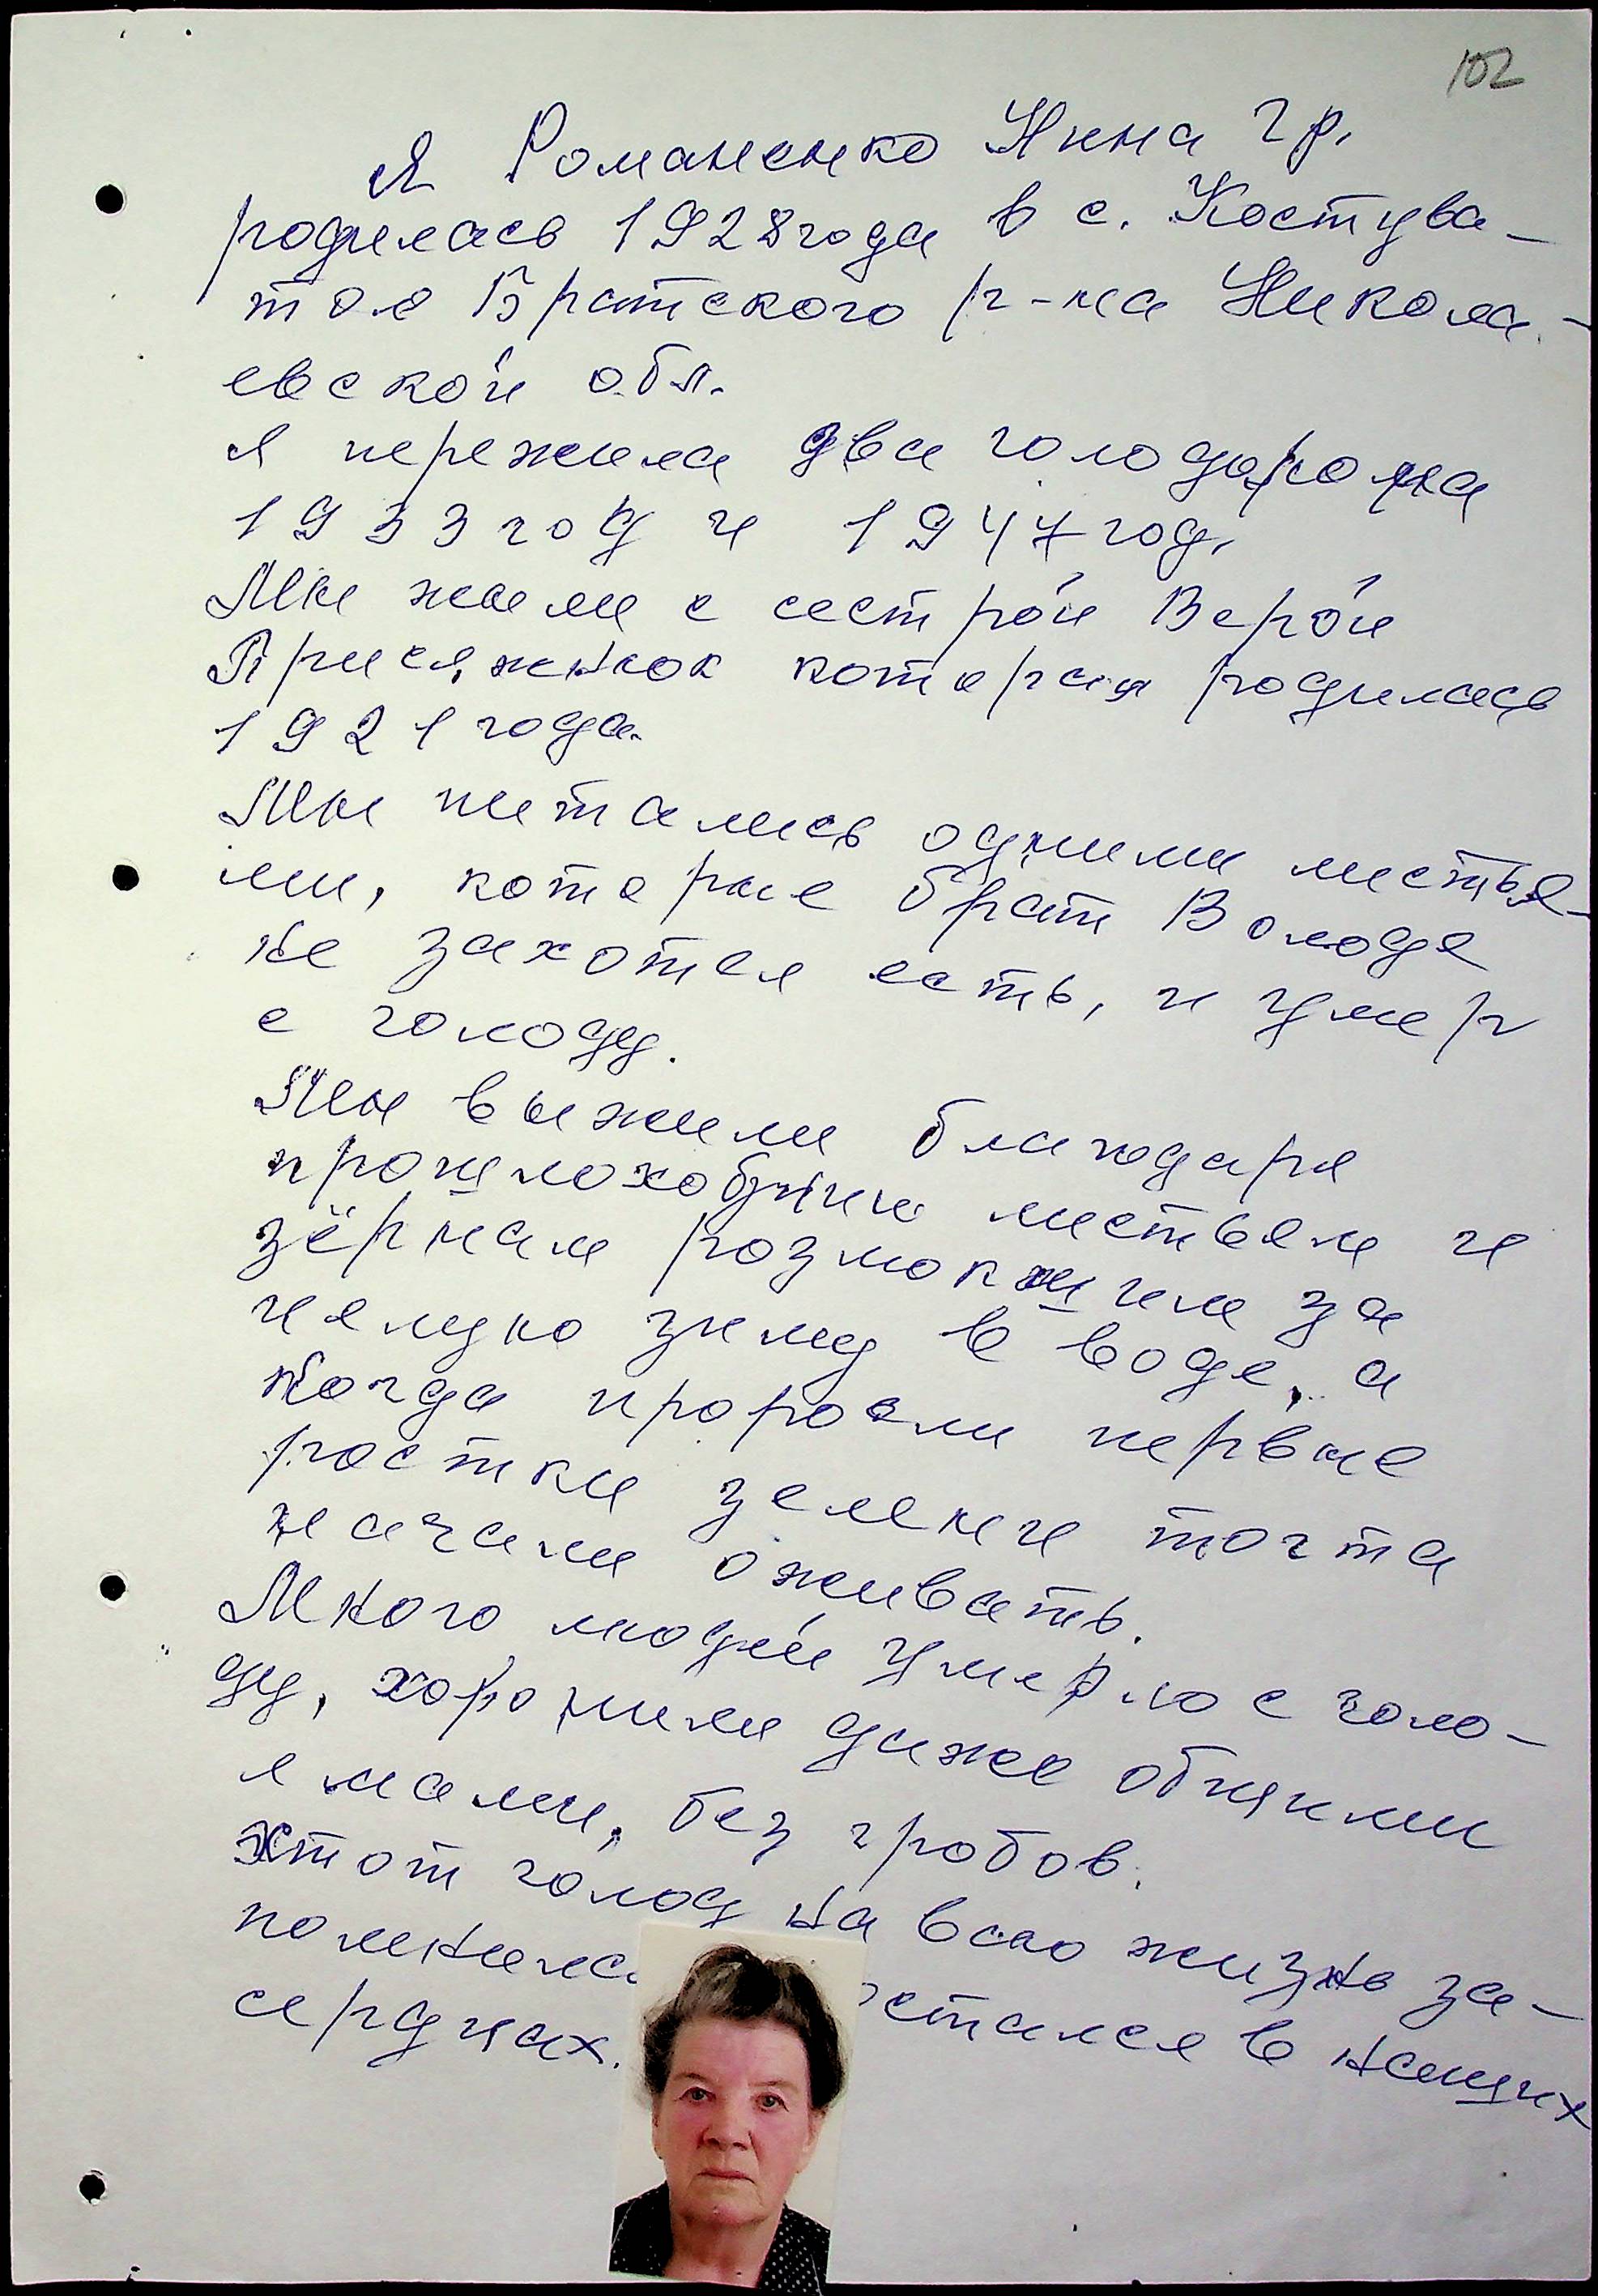 102
Я Романенко Нина Гр.
родилась 1928 года в с. Костува-
тое Братского р-на Никола-
евской обл.
Я пережила два голодомора
1933 год и 1947 год.
Мы жили с сестрой Верой
Присяжнюк которая родилась
1921 года.
Мы питались одними листья-
ми, которые брат Володя
не захотел есть, и умер
с голоду.
Мы выжили благодаря
листьям и
зёрнам розмокшим за
целую зиму в воде, а
когда проросли первые
ростки зелени тогта
начали оживать.
Много людей умерло с голо-
ду, хоронили даже обчими
ямами, без гробов.
Этот голод на всю жизнь за-
помнился остался в наших
серцах.